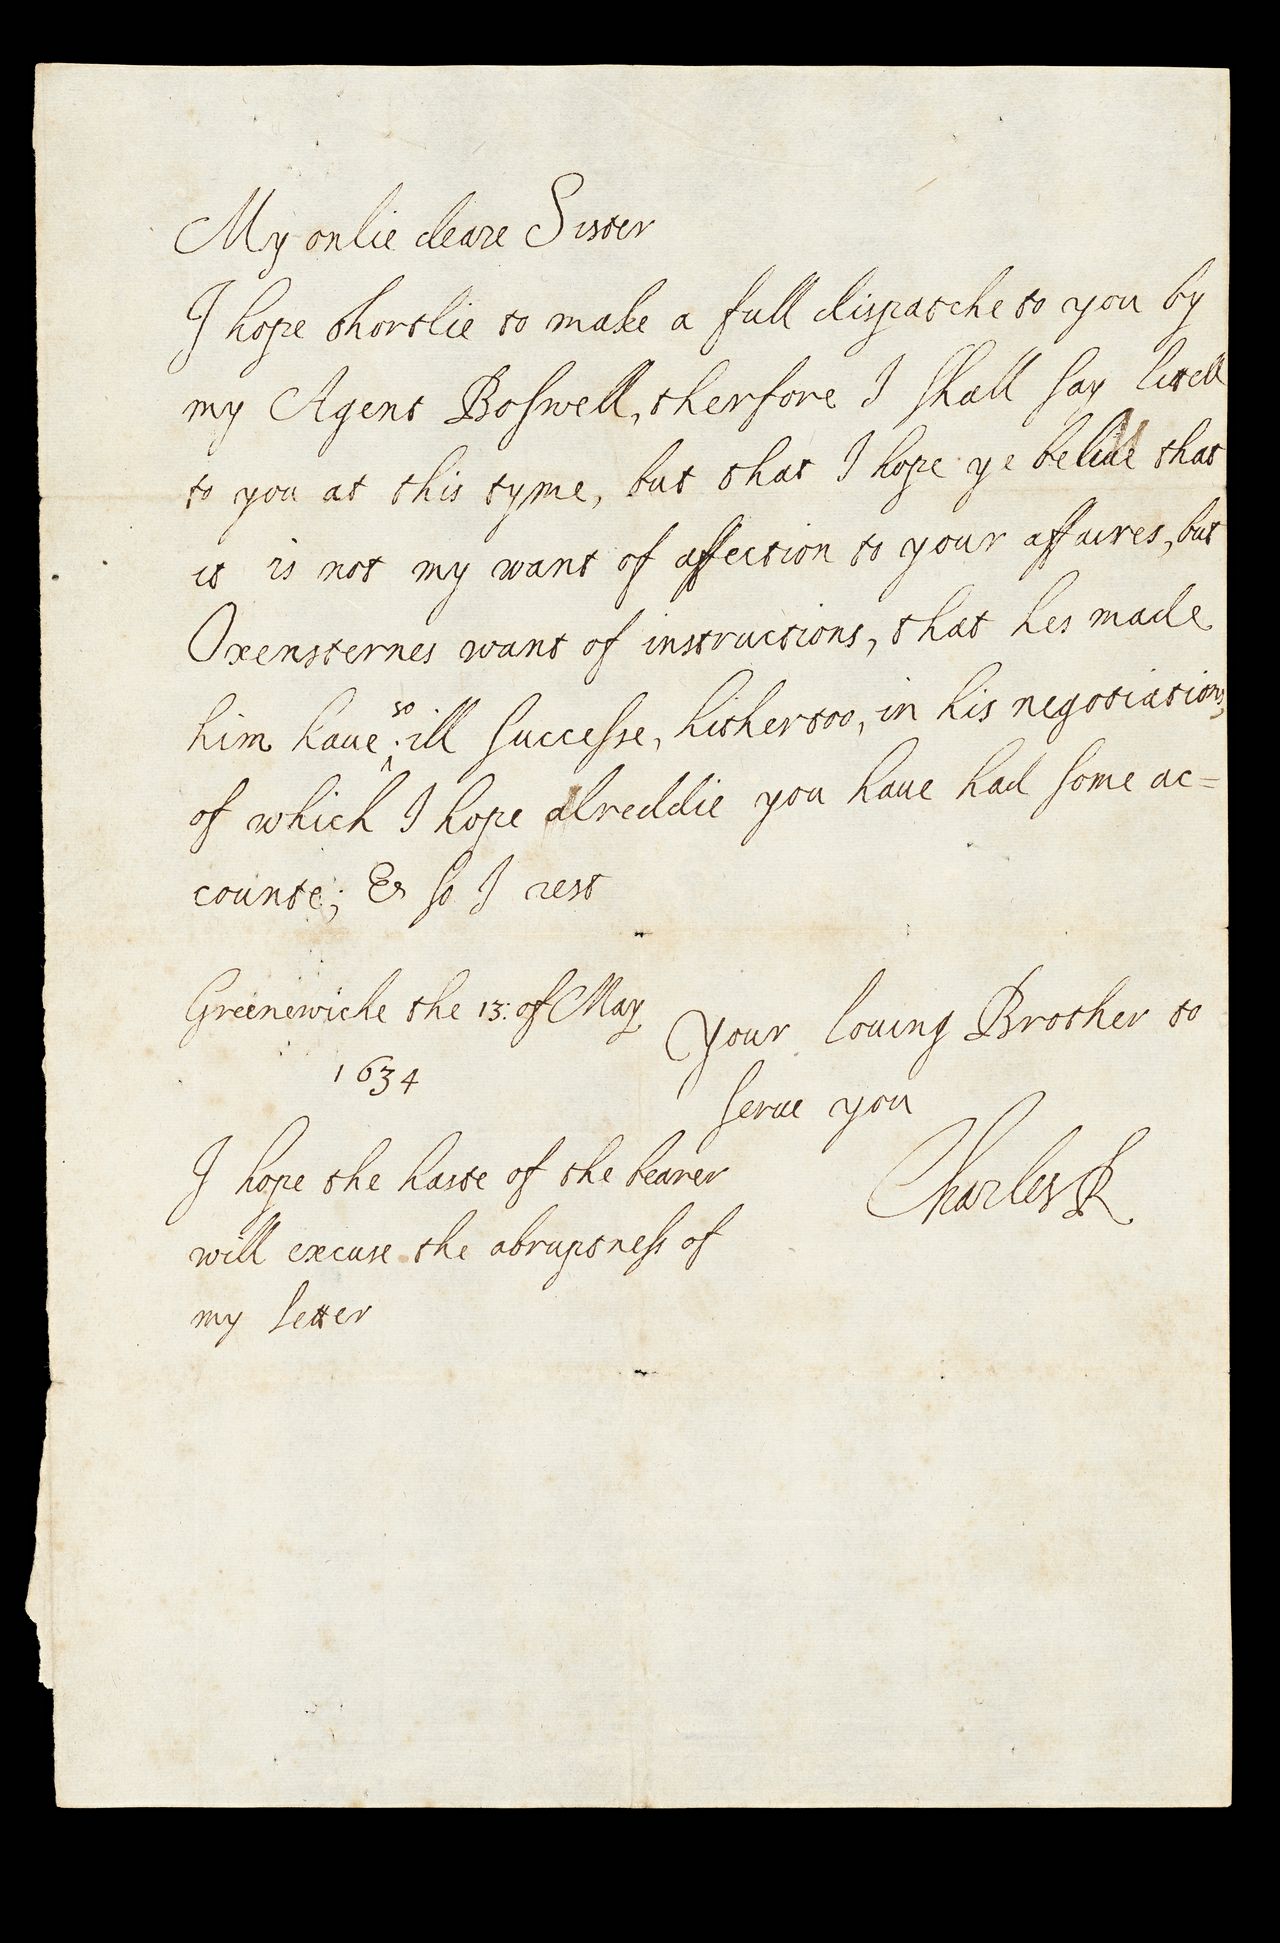 My onlie deare Sister
I hope shortlie to make a full dispatche to you by
my Agent Boswell, therfore I shall say litell
to you at this tyme, but that I hope ye beliue that
it is not my want of affection to your affaires, but
Oxensternes want of instructions, that hes made
him haue so ill successe, hithertoo, in his negotiations,
of which I hope alreddie you haue had some ac=
counte; & so I rest
Greenewiche the 13: of May
1634
Your louing Brother to
serue you
Charles R
I hope the haste of the bearer
will excuse the abruptness of
my letter